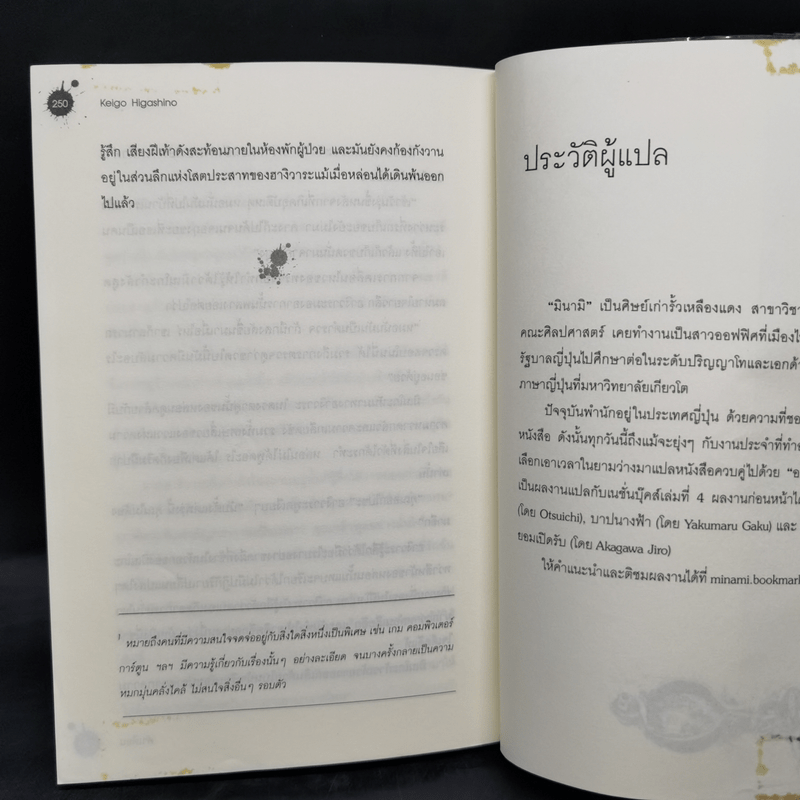 250
Keigo Higashino
รู้สึก เสียงฝีเท้าดังสะท้อนภายในห้องพักผู้ป่วย และมันยังคงก้องกังวาน
อยู่ในส่วนลึกแห่งโสตประสาทของฮางิวาระแม้เมื่อหล่อนได้เดินพ้นออก
ไปแล้ว
1 หมายถึงคนที่มีความสนใจจดจ่ออยู่กับสิ่งใดสิ่งหนึ่งเป็นพิเศษ เช่น เกม คอมพิวเตอร์
การ์ตูน ฯลฯ มีความรู้เกี่ยวกับเรื่องนั้นๆ อย่างละเอียด จนบางครั้งกลายเป็นความ
หมกมุ่นคลั่งไคล้ ไม่สนใจสิ่งอื่นๆ รอบตัว
ประวัติผู้แปล
"มินามิ" เป็นศิษย์เก่ารั้วเหลืองแดง สาขาวิชา
คณะศิลปศาสตร์ เคยทำงานเป็นสาวออฟฟิศที่เมืองไ
รัฐบาลญี่ปุ่นไปศึกษาต่อในระดับปริญญาโทและเอกด้
ภาษาญี่ปุ่นที่มหาวิทยาลัยเกียวโต
ปัจจุบันพำนักอยู่ในประเทศญี่ปุ่น ด้วยความที่ชอ
หนังสือ ดังนั้นทุกวันนี้ถึงแม้จะยุ่งๆ กับงานประจำที่ทำอ
เลือกเอาเวลาในยามว่างมาแปลหนังสือควบคู่ไปด้วย "อ
เป็นผลงานแปลกับเนชั่นบุ๊คส์เล่มที่ 4 ผลงานก่อนหน้าได้
(โดย Otsuichi), บาปนางฟ้า (โดย Yakumaru Gaku) และ
ยอมเปิดรับ (โดย Akagawa Jiro)
ให้คำแนะนำและติชมผลงานได้ที่ minami.bookmark